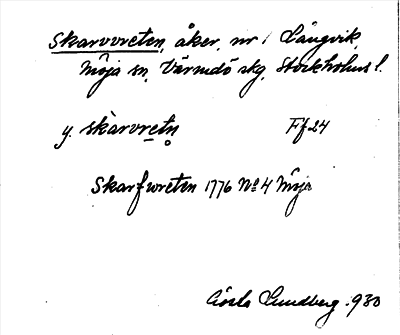 Skarvvreten, åker, nr 1 Långvik,
Möja sn, Värmdö skg, Stockholms l.
y. skàrvretn̥ Ff 24
Skarfwreten 1776 No 4 Möja
Gösta Lundberg 1930